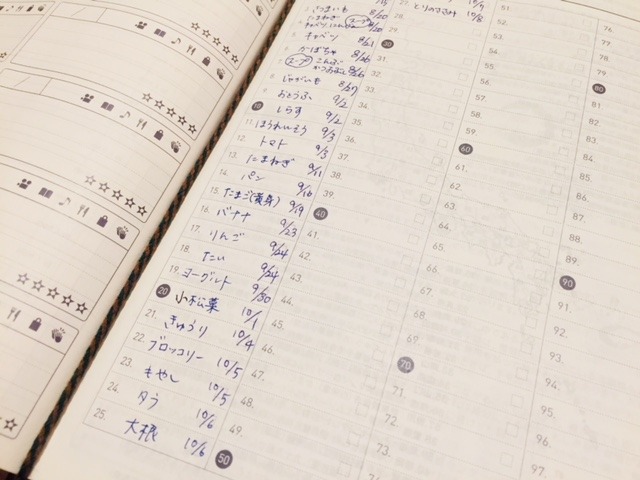 さつまいも 8/20
たまねぎ スープ 8/20
キャベツ、にんじん
キャベツ 8/21
かぼちゃ 8/26
スープ こんぶ かつおぶし 8/26
8 じゃがいも 8/27
9 おとうふ 9/2
10 しらす 9/2
11. ほうれんそう 9/3
12. トマト 9/3
13. たまねぎ 9/11
14. パン 9/16
15. たまご(黄身) 9/19
16. バナナ 9/23
17. りんご 9/24
18. たい 9/24
19. ヨーグルト 9/30
20 小松菜 10/1
21. きゅうり 10/4
22. ブロッコリー 10/5
23. もやし 10/5
24. タラ 10/6
25. 大根 10/6
27. とりのささみ 10/8
28.
29.
30
31.
32.
33.
34.
35.
36.
37.
38.
39.
40
41.
42.
43.
44.
45.
46.
47.
48.
49.
50
51.
52.
53.
54.
55.
56.
57.
58.
59.
60
61.
62.
63.
64.
65.
66
67.
68.
69.
70
71
72.
73.
74
76.
77.
78.
79.
80
81.
82.
83.
84.
85.
86.
87.
88.
89.
90
91.
92.
93.
94.
95.
96.
97.